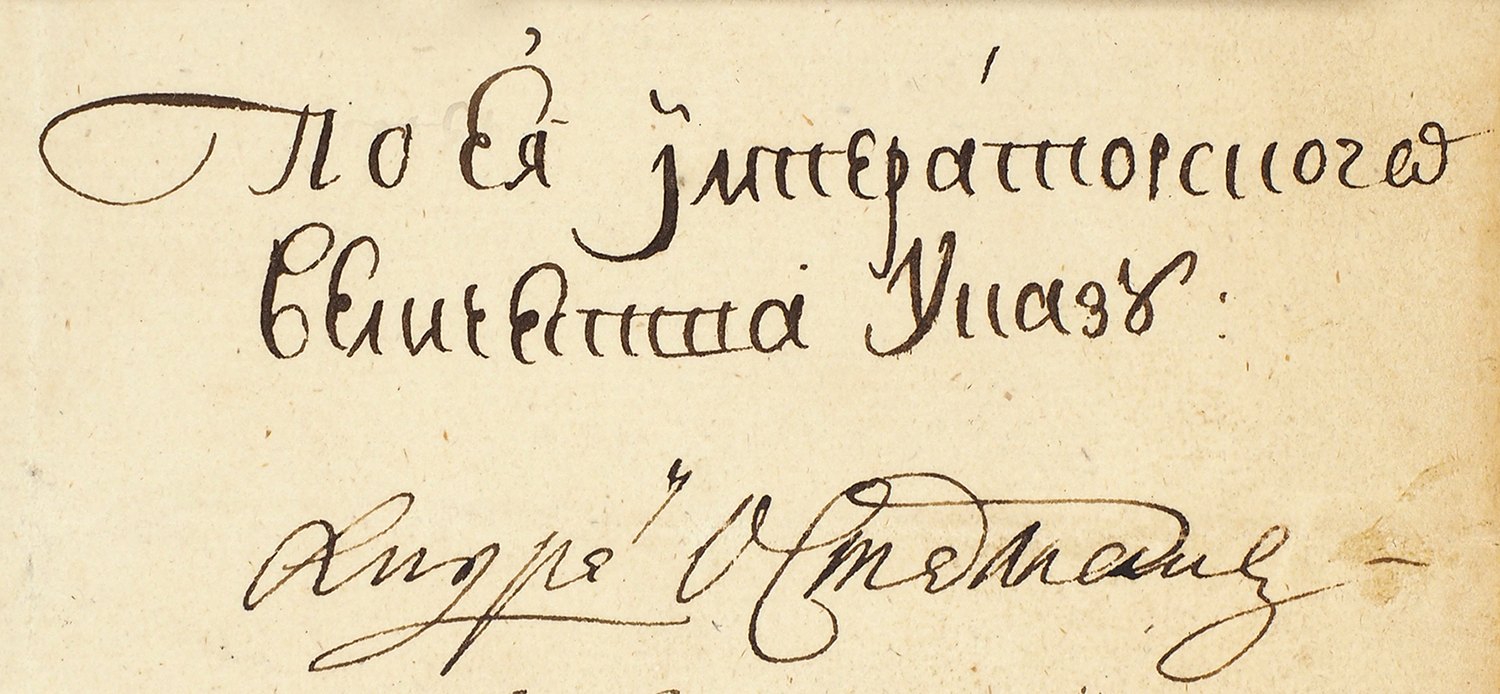 По Ея Императорского
Величества Указу:
Андрей Остерманъ